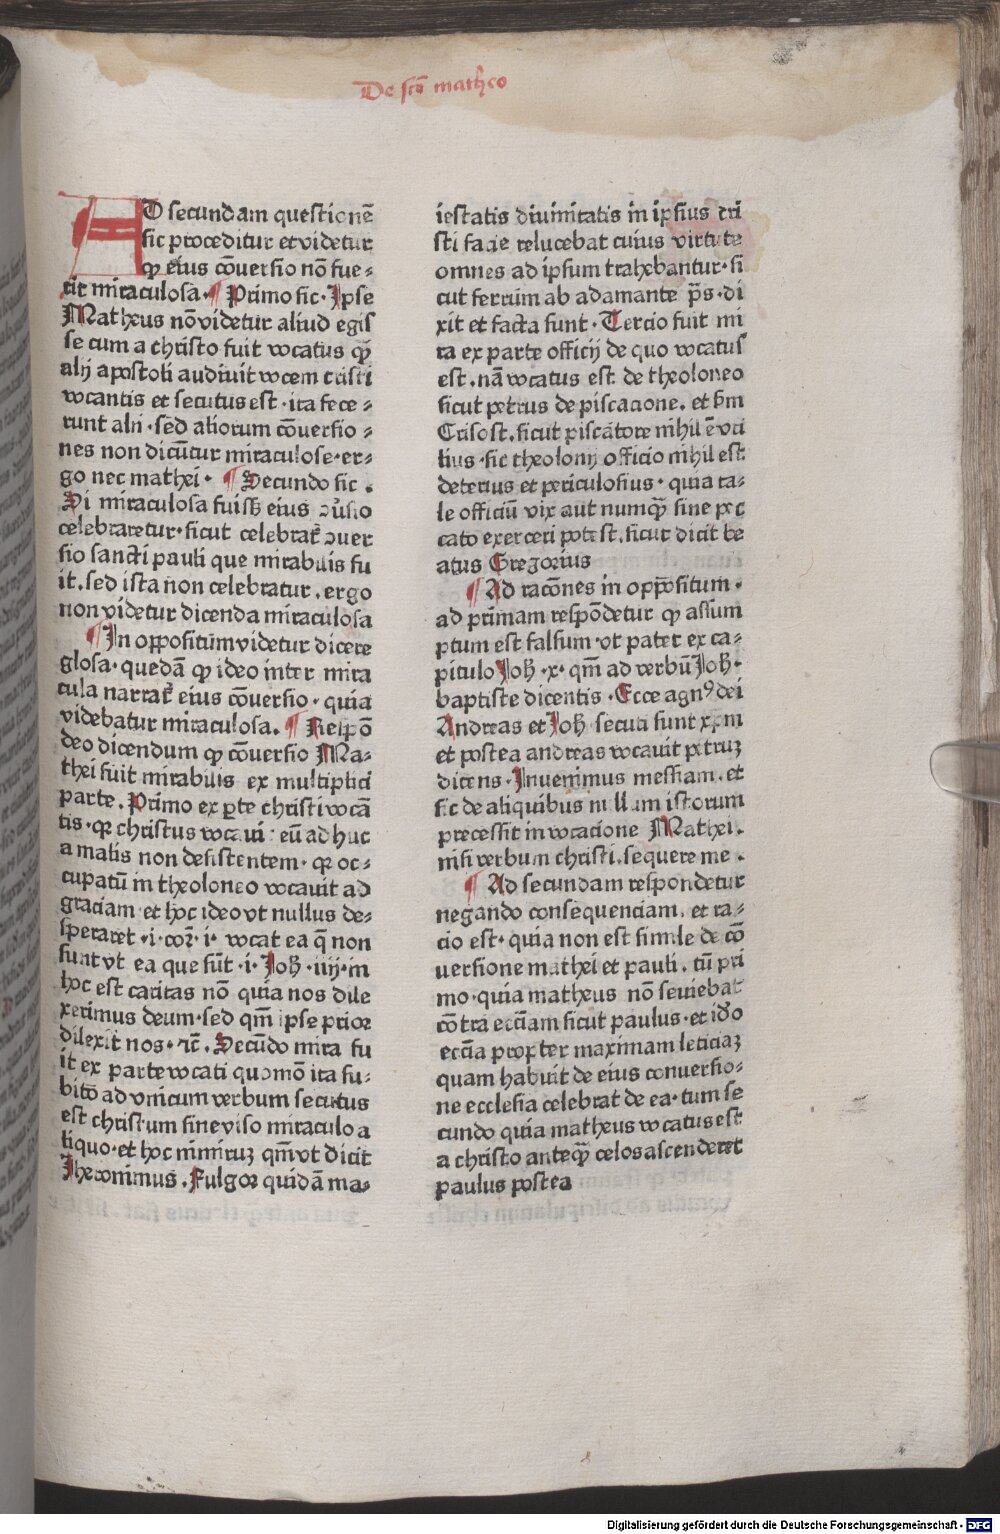 De scō matheo
AD secundam questionē
sic proceditur et videtur
ꝙ eius cōuersio nō fue-
rit miraculosa. ¶ Primo sic. Ipse
Matheus nō videtur aliud egis
se cum a christo fuit vocatus qͫ
alij apostoli audiuit vocem cristi
vocantis et secutus est. ita fece-
runt alij. sed aliorum cōuersio-
nes non dicūtur miraculose. er-
go nec mathei. ¶ Secundo sic.
Si miraculosa fuiss; eius ꝯūsio
celebraretur. sicut celebrat᷑ ꝯuer
sio sancti pauli que mirabilis fu
it. sed ista non celebratur. ergo
non videtur dicenda miraculosa
¶ In oppositum videtur dicere
glosa. quedā ꝙ ideo inter mira
cula narrat᷑ eius cōuersio. quia
videbatur miraculosa. ¶ Respō
deo dicendum ꝙ cōuersio Ma-
thei fuit mirabilis ex multiplici
parte. Primo ex ꝑte christi vocā
tis. qꝛ christus vocauit eū ad huc
a malis non desistentem. qꝛ oc-
cupatū in theoloneo vocauit ad
graciam et hoc ideo vt nullus de-
speraret. i. coꝝ. i. vocat ea q̄ non
sunt vt ea que sūt. i. Joh̄. iiij. in
hoc est caritas nō quia nos dile
xerimus deum. sed qm̄ ipse prior
dilexit nos. ⁊c̄. Secūdo mira fu
it ex parte vocati quomō ita su-
bito ad vnicum verbum secutus
est christum sine viso miraculo a
liquo. et hoc nimiruꝫ qm̄ vt dicit
Iheronimus. Fulgor quidā ma-
iestatis diuinitatis in ipsius cri
sti facie relucebat cuius virtute
omnes ad ipsum trahebantur. si
cut ferrum ab adamante p̄s. di
xit et facta sunt. Tercio fuit mi
ra ex parte officij de quo vocatus
est. nā vocatus est de theoloneo
sicut petrus de piscacione. et s̄m
Crisost. sicut piscatore nihil ē vti
lius. sic theolonij officio nihil est
deterius et periculosius. quia ta-
le officiū vix aut numqͫ sine pec
cato exerceri potest. sicut dicit be
atus Gregorius
¶ Ad racōnes in oppositum.
ad primam respōdetur ꝙ assum
ptum est falsum vt pater ex ca-
pitulo Joh̄. x. qm̄ ad verbū Joh̄.
baptiste dicentis. Ecce agnꝰ dei
Andreas et Joh̄ secuti sunt xp̄m
et postea andreas vocauit petruꝫ
dicens. Inuenimus messiam. et
sic de aliquibus nullum istorum
precessit in vocacione Mathei.
nisi verbum christi. sequere me.
¶ Ad secundam respondetur
negando consequenciam. et ra-
cio est. quia non est simile de cō
uersione mathei et pauli. tū pri
mo. quia matheus nō seuiebat
cōtra eccīam sicut paulus. et idō
eccīa propter maximam leticiaꝫ
quam habuit de eius conuersio-
ne ecclesia celebrat de ea. tum se
cundo quia matheus vocatus est
a christo anteqͫ celos ascenderet
paulus postea
Digitalisierung gefördert durch die Deutsche Forschungsgemeinschaft - DFG